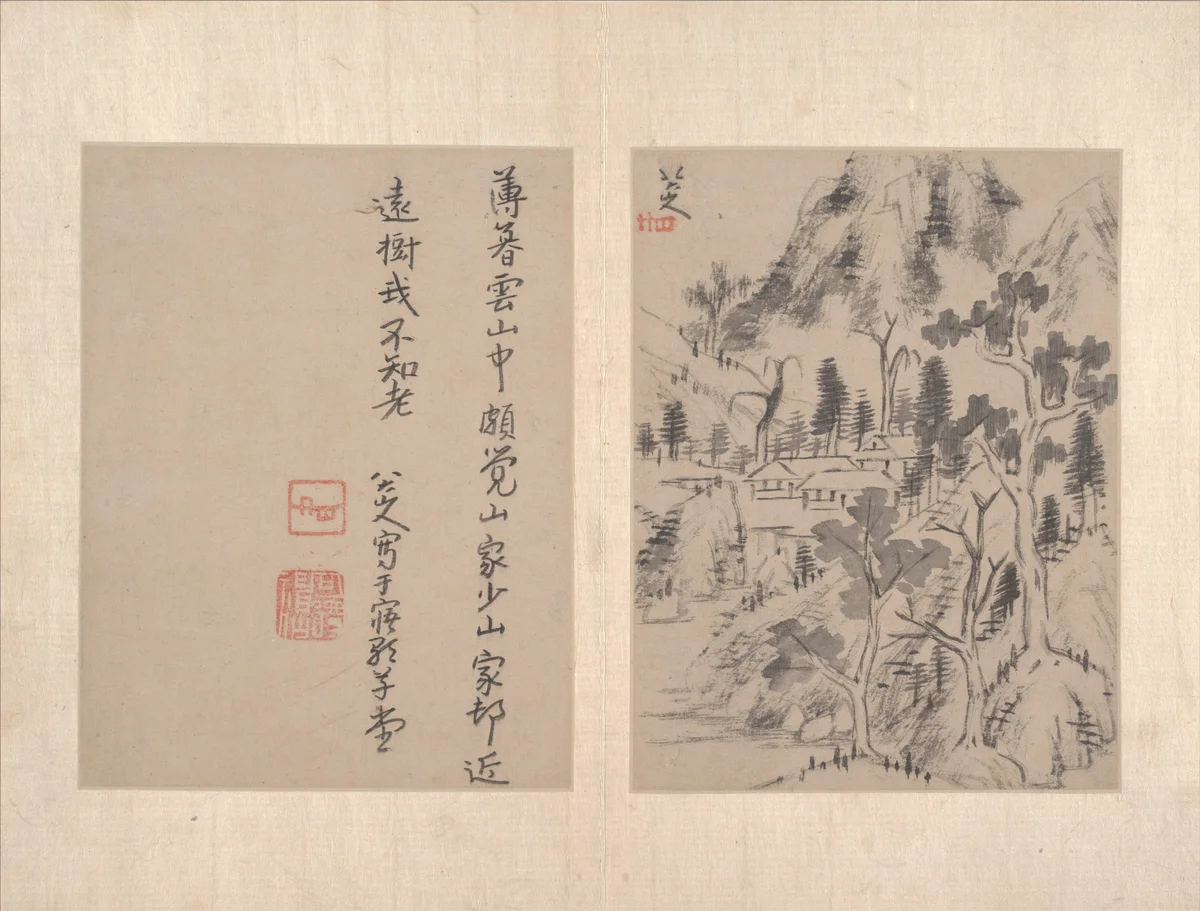 八大山人
薄暮雲山中頗覚山家少山家邨近
遠樹我不知老
八大山人寫于寤歌草堂